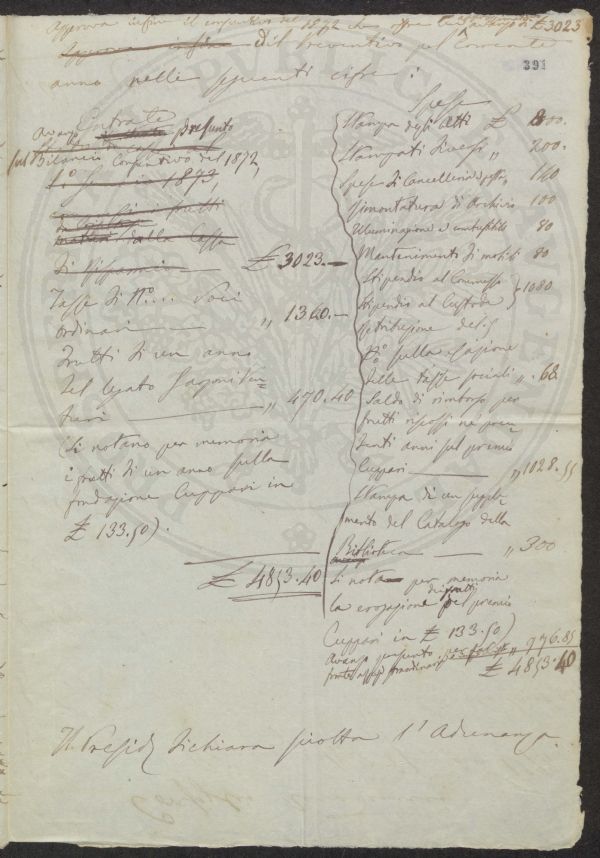 Approva infine il consuntivo del 1872 che
£ 3023.
Approva infine del Preventivo pel Corrente
391
anno nelle seguenti cifre:
Entrate
Avanzo presunto
sul Bilancio Consuntivo del 1872,
1873,
frutti
dalla Cassa
di Risparmio £ 3023.—
Tasse di N.° .... Soci
ordinari — „ 1360.—
Frutti di un anno
del legato
— „ 470.40
(Si notano per memoria
i frutti di un anno sulla
fondazione Cuppari in
£ 133.50).
£ 4853.40
Spese
Stampa degli Atti £ 800.
Stampati diversi „ 200.
Spese di Cancelleria e posta „ 140
Spese d'Archivio 100
Illuminazione e combustibile 80
Mantenimento di mobili 80
Stipendio al Commesso
Stipendio al Custode } 1080
Retribuzione del 5
p% sulla esazione
delle tasse sociali „ 68.
Saldo di rimborso per
frutti riscossi ne' prece
denti anni sul premio
Cuppari — „ 1028.55
Stampa di un supple
mento del Catalogo della
Biblioteca — „ 300
Si nota per memoria
la erogazione dei frutti del premio
Cuppari in £ 133.50)
Avanzo presunto per far
fronte a spese straordinarie „ 976.85
£ 4853.40
Il Presid.e dichiara sciolta l'Adunanza.